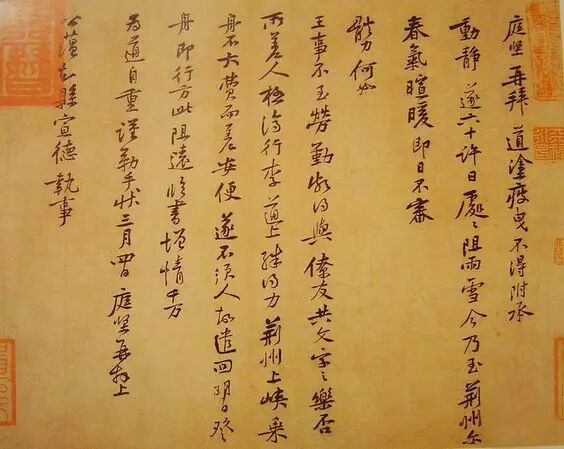 庭堅再拜 道塗疲曳不得附承
動靜 遂六十許日處々阻雨雪今乃至荊州尔
春氣暄暖 即日不審
體力何如
王事不至勞勤頗得與僚友共文字之樂否
所差人極濟行李道上殊得力荊州上峽乘
舟不大費而差安便遂不須人故遣回明日登
舟即行方此阻遠臨書增情千万
為道自重謹勒手狀三月四日庭堅再拜上
公蘊知縣宣德執事